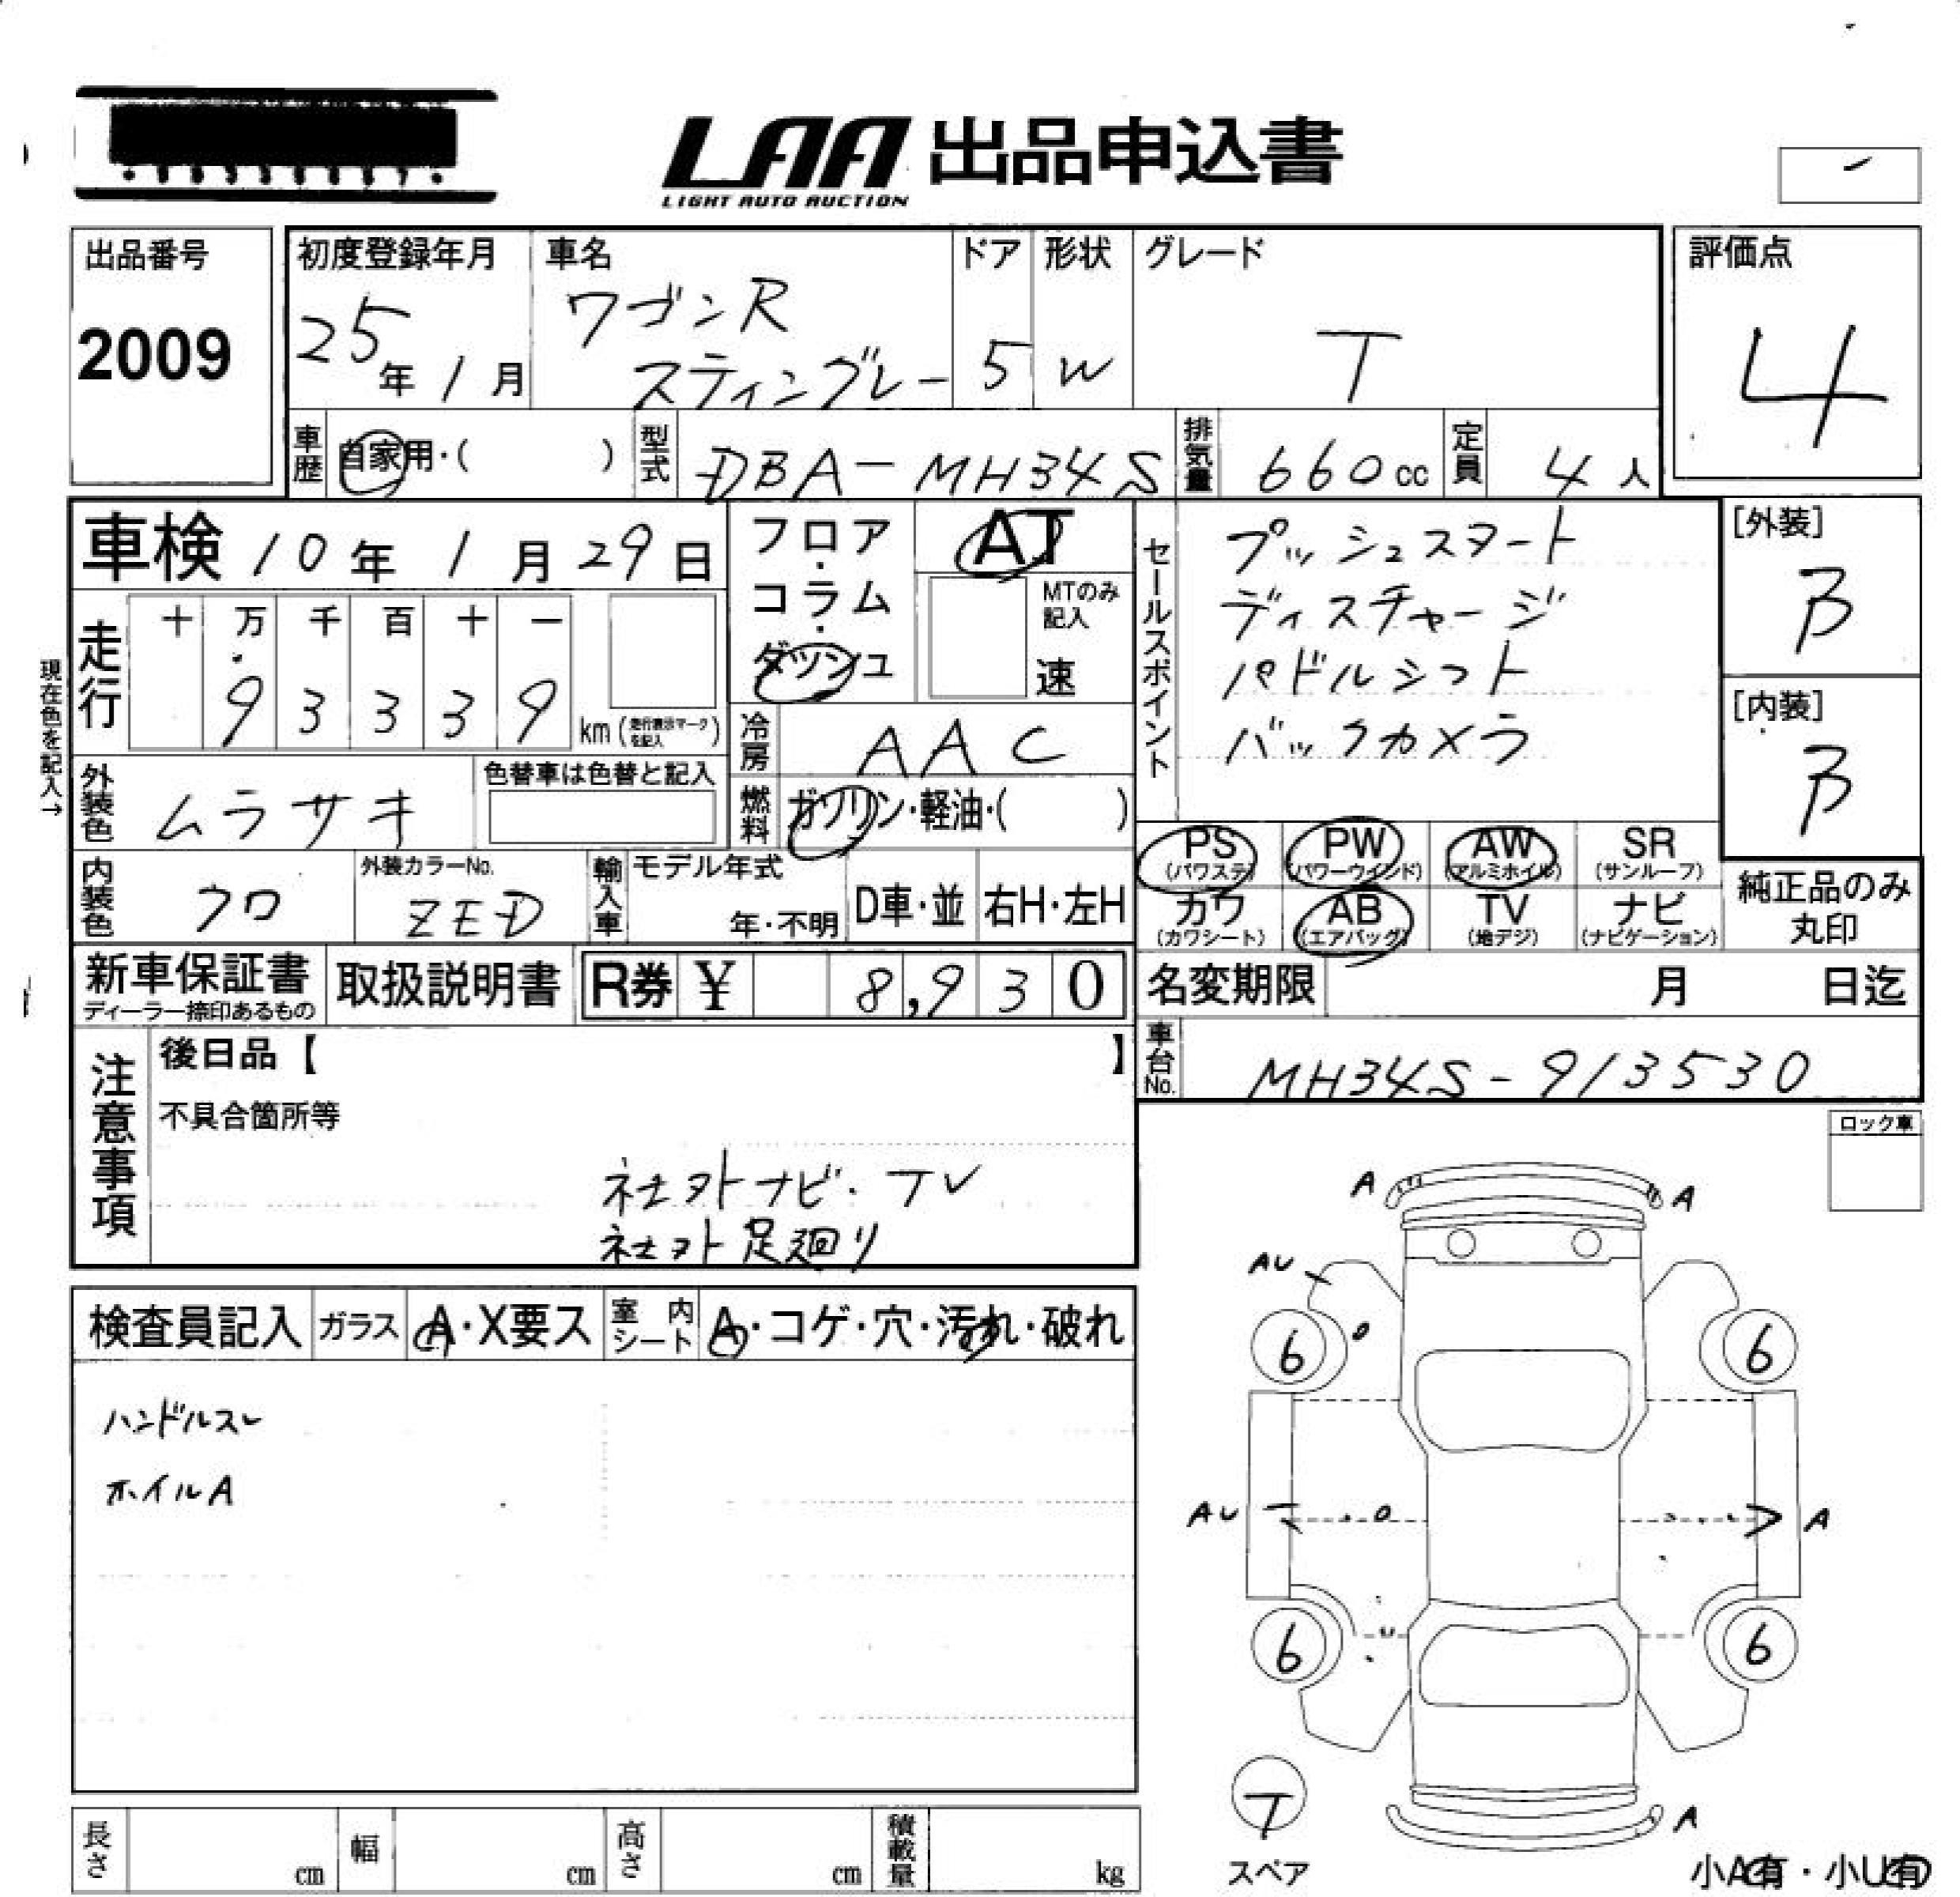 LAA 出品申込書
LIGHT AUTO AUCTION
出品番号
2009
初度登録年月
25年1月
車名
ワゴンR
スティングレー
ドア
5
形状
W
グレード
T
評価点
4
車歴 自家用・( )
型式 DBA-MH34S
排気量 660cc
定員 4人
車検 10年1月29日
フロア・コラム・ダッシュ
AT
MTのみ記入
速
セールスポイント
プッシュスタート
ディスチャージ
パドルシフト
バックカメラ
[外装]
B
[内装]
B
現在色を記入→
走行
十 万 千 百 十 一
9 3 3 3 9
km(走行表示マークを記入)
冷房 AAC
外装色 ムラサキ
色替車は色替と記入
燃料 ガソリン・軽油・( )
PS (パワステ)
PW (パワーウインド)
AW (アルミホイル)
SR (サンルーフ)
カワ (カワシート)
AB (エアバッグ)
TV (地デジ)
ナビ (ナビゲーション)
純正品のみ
丸印
内装色 クロ
外装カラーNo.
ZED
輸入車
モデル年式
年・不明
D車・並
右H・左H
新車保証書
ディーラー捺印あるもの
取扱説明書
R券 ¥ 8,930
名変期限 月 日迄
車台No. MH34S-913530
注意事項
後日品【 】
不具合箇所等
社外ナビ・TV
社外足廻り
ロック車
検査員記入
ガラス A・X要ス
室内シート A・コゲ・穴・汚れ・破れ
ハンドルスレ
ホイルA
A A
AU
6 6
AU A
6 6
T
スペア
A
長さ cm
幅 cm
高さ cm
積載量 kg
小A有・小U有